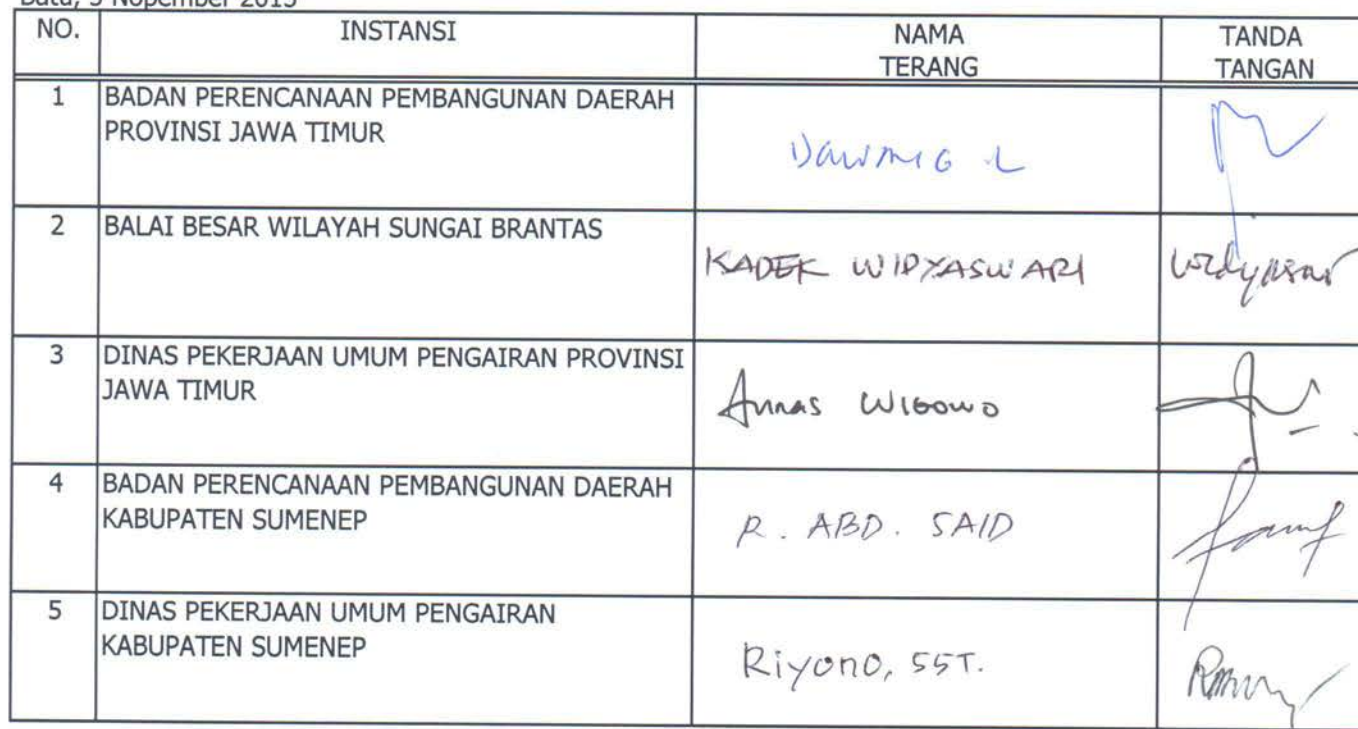 Batu, 5 Nopember 2015
NO.
INSTANSI
NAMA
TERANG
TANDA
TANGAN
1
BADAN PERENCANAAN PEMBANGUNAN DAERAH
PROVINSI JAWA TIMUR
2
BALAI BESAR WILAYAH SUNGAI BRANTAS
KADEK WIDYASWARI
3
DINAS PEKERJAAN UMUM PENGAIRAN PROVINSI
JAWA TIMUR
Annas WIBOWO
4
BADAN PERENCANAAN PEMBANGUNAN DAERAH
KABUPATEN SUMENEP
R. ABD. SAID
5
DINAS PEKERJAAN UMUM PENGAIRAN
KABUPATEN SUMENEP
Riyono, SST.